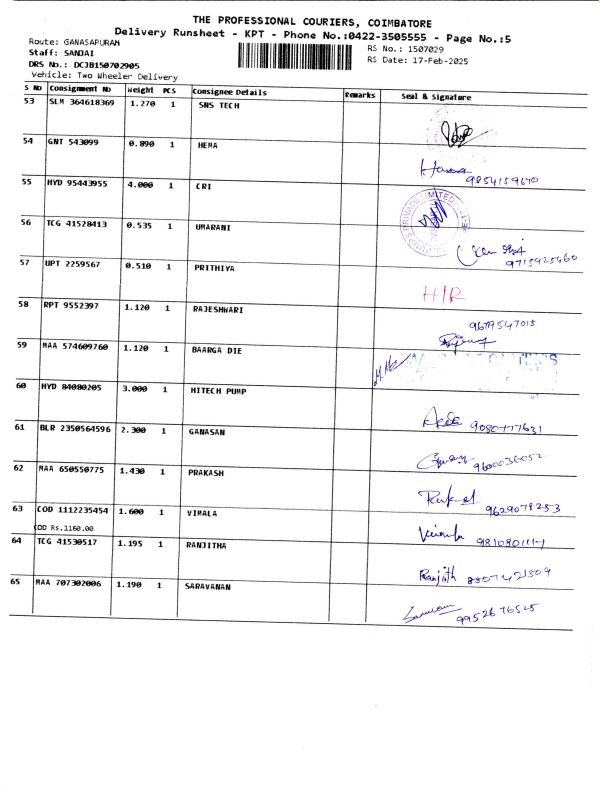 THE PROFESSIONAL COURIERS, COIMBATORE
Delivery Runsheet - KPT - Phone No.:0422-3505555 - Page No.:5
Route: GANASAPURAM
Staff: SANJAI
DRS No.: DCJB150702905
Vehicle: Two Wheeler Delivery
RS No.: 1507029
RS Date: 17-Feb-2025
S No Consignment No Weight PCS Consignee Details Remarks Seal & Signature
53 SLM 364618369 1.270 1 SNS TECH
54 GNT 543099 0.890 1 HEMA
9854159670
55 HYD 95443955 4.000 1 CRI
56 TCG 41528413 0.535 1 UMARANI
9715925460
57 UPT 2259567 0.510 1 PRITHIYA
H/R
58 RPT 9552397 1.120 1 RAJESHWARI
9679547015
59 MAA 574609760 1.120 1 BAARGA DIE
60 HYD 84080205 3.000 1 HITECH PUMP
61 BLR 2350564596 2.300 1 GANASAN
9600036052
62 MAA 650550775 1.430 1 PRAKASH
9629078253
63 COD 1112235454 1.600 1 VIMALA
COD Rs.1160.00
64 TCG 41530517 1.195 1 RANJITHA
Ranjith
65 MAA 707302006 1.190 1 SARAVANAN
9952676525